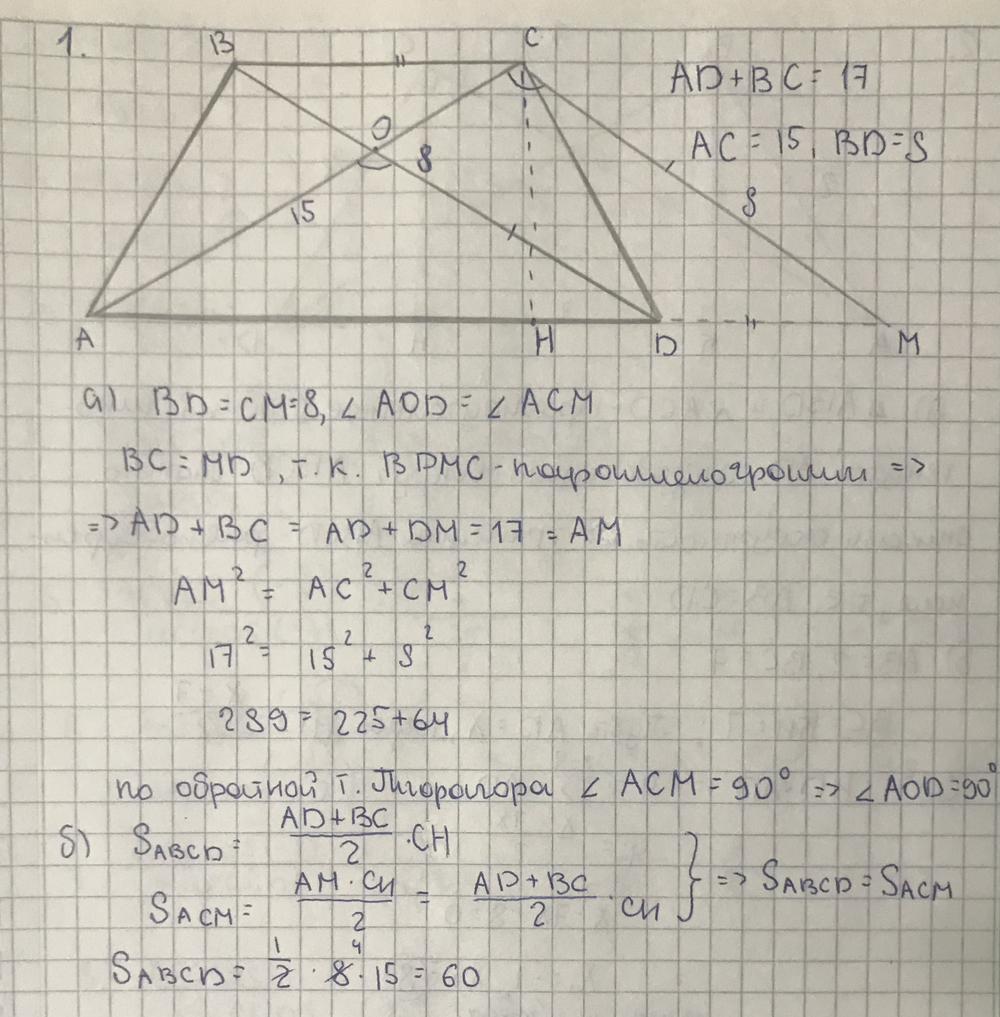 1.
B
C
AD+BC = 17
O
8
AC = 15, BD=8
15
8
A
H
D
M
а) BD = CM=8, ∠ AOD = ∠ ACM
BC = MD , т.к. BDMC - параллелограмм =>
=> AD + BC = AD + DM = 17 = AM
AM² = AC² + CM²
17² = 15² + 8²
289 = 225+64
по обратной т. Пифагора ∠ ACM = 90° => ∠ AOD = 90°
б) SABCD = (AD+BC)/2 · CH
SACM = (AM · CH)/2 = (AD + BC)/2 · CH } => SABCD = SACM
SABCD = 1/2 · 8 · 15 = 60
4